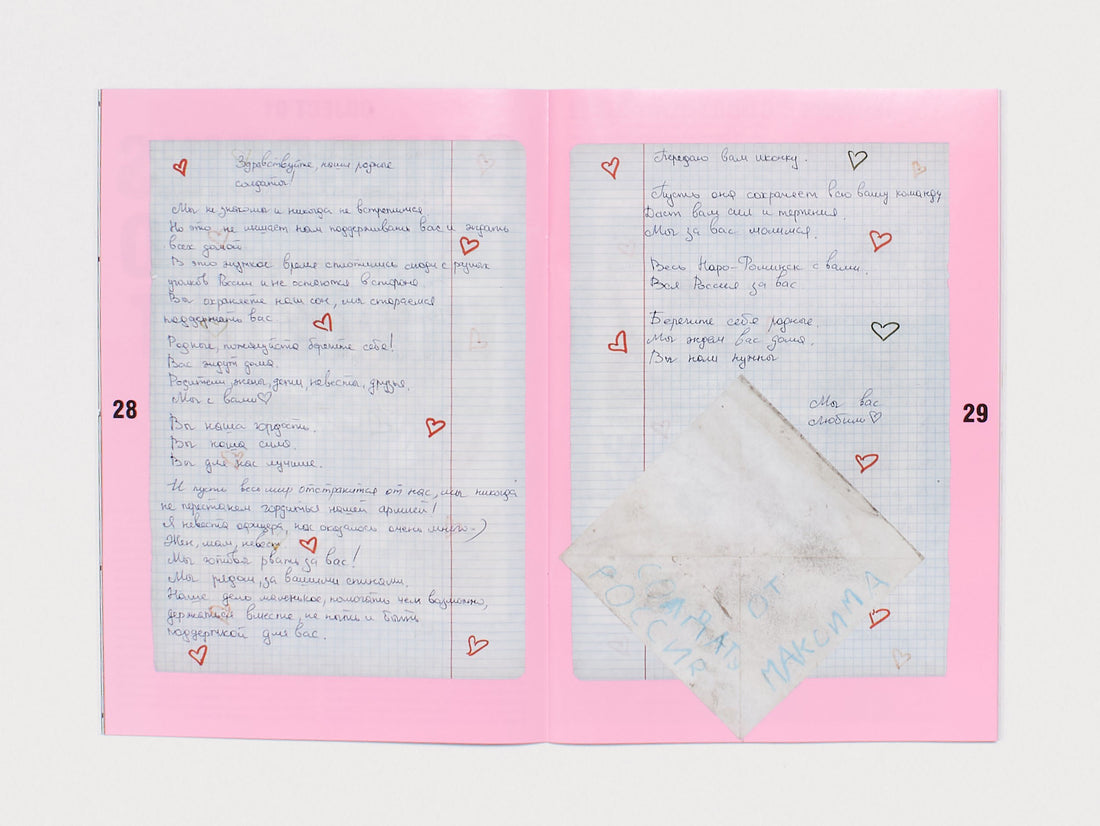 28
Здравствуйте, наши родные
солдаты!
Мы не знакомы и никогда не встретимся
Но это не мешает нам поддерживать вас и ждать
всех домой
В это жуткое время сплотились люди с разных
уголков России и не остаются в стороне.
Вы охраняете наш сон, мы стараемся
поддержать вас
Родные, пожалуйста берегите себя!
Вас ждут дома.
Родители, жены, дети, невесты, друзья.
Мы с вами♡
Вы наша гордость.
Вы наша сила.
Вы для нас лучшие.
И пусть весь мир отстранится от нас, мы никогда
не перестанем гордиться нашей армией!
Я невеста офицера, нас оказалось очень много:)
Жен, мам, невест
Мы готовы рвать за вас!
Мы рядом, за вашими спинами.
Наше дело маленькое, помогать чем возможно,
держаться вместе, не ныть и быть
поддержкой для вас.
Передаю вам иконку.
Пусть она сохраняет всю вашу команду
Даст вам сил и терпения.
Мы за вас молимся.
Весь Наро-Фоминск с вами.
Вся Россия за вас
Берегите себя родные.
Мы ждем вас дома.
Вы нам нужны
Мы вас
любим♡
СОЛДАТУ
РОССИЯ
ОТ
МАКСИМА
29